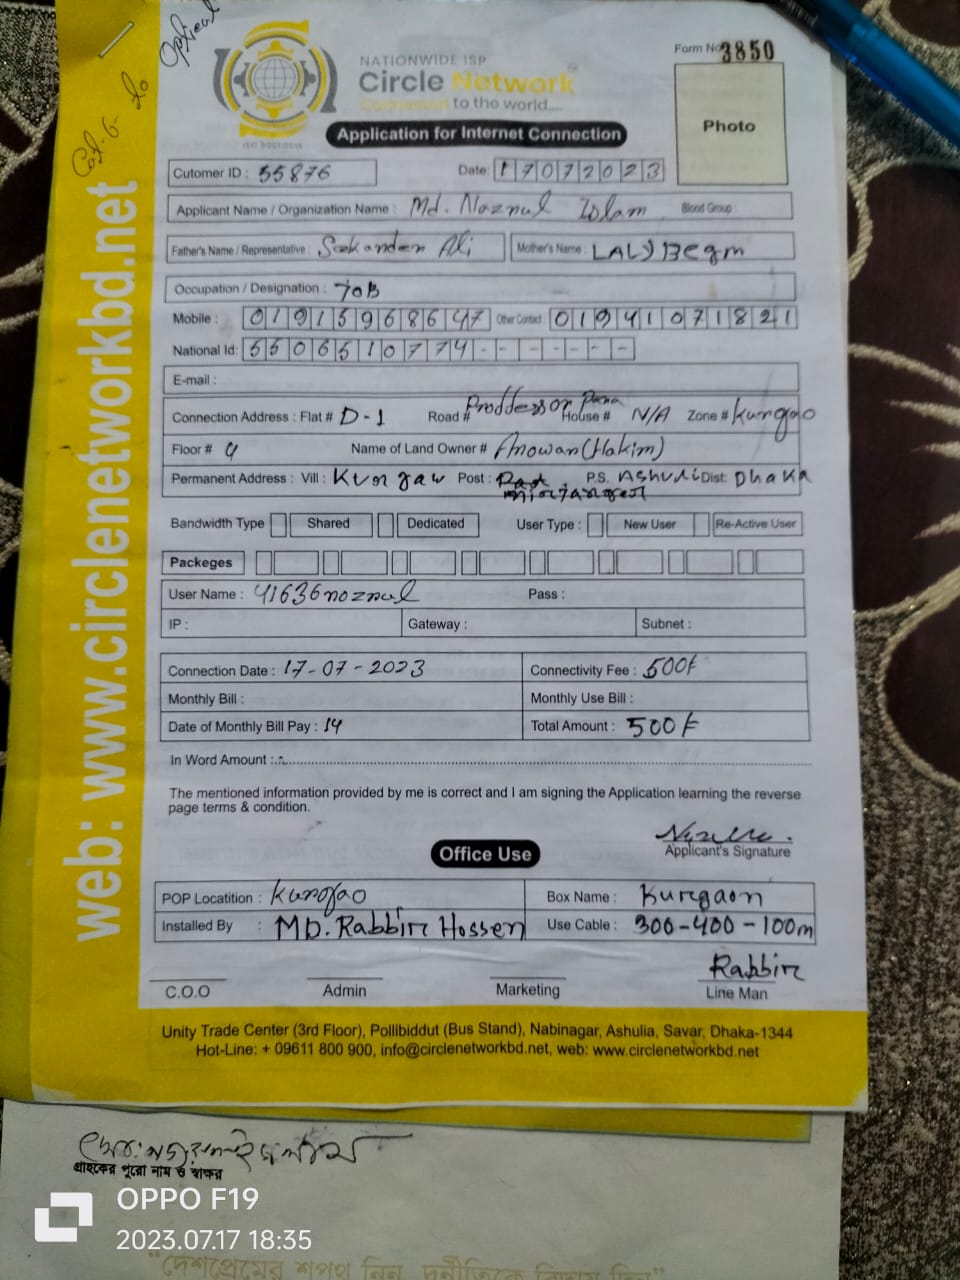 Optical
Cat-6-
NATIONWIDE ISP
Circle Network
Connected to the world....
ISO 9001:2015
Form No 3850
Photo
Application for Internet Connection
Cutomer ID : 55876 Date: 17072023
Applicant Name / Organization Name : Md. Naznul Islam Blood Group :
Father's Name / Representative : Sekander Ali Mother's Name : LALY BEgm
Occupation / Designation : JOB
Mobile : 01915968647 Other Contact 01941071821
National Id: 5506510774-------
E-mail :
Connection Address : Flat # D-1 Road # House # N/A Zone # Kurgao
Floor # 4 Name of Land Owner # Anowar (Hakim)
Permanent Address : Vill : Kurgaw Post : P.S. Ashuli Dist: Dhaka
Bandwidth Type Shared Dedicated User Type : New User Re-Active User
Packeges
User Name : 41636noznul Pass :
IP : Gateway : Subnet :
Connection Date : 17-07-2023 Connectivity Fee : 500/-
Monthly Bill : Monthly Use Bill :
Date of Monthly Bill Pay : 14 Total Amount : 500/-
In Word Amount :
The mentioned information provided by me is correct and I am signing the Application learning the reverse
page terms & condition.
Applicant's Signature
Office Use
POP Locatition : Kurgao Box Name : Kurgaon
Installed By : MD. Rabbir Hossen Use Cable : 300-400-100m
Rabbir
C.O.O Admin Marketing Line Man
Unity Trade Center (3rd Floor), Pollibiddut (Bus Stand), Nabinagar, Ashulia, Savar, Dhaka-1344
Hot-Line: + 09611 800 900, info@circlenetworkbd.net, web: www.circlenetworkbd.net
web: www.circlenetworkbd.net
মোঃ নজরুল ইসলাম
গ্রাহকের পুরো নাম ও স্বাক্ষর
OPPO F19
2023.07.17 18:35
"দেশপ্রেমের শপথ নিন, দুর্নীতিকে বিদায় দিন"